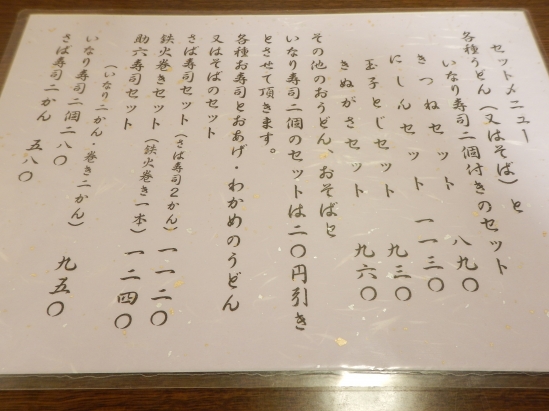 セットメニュー
各種うどん（又はそば）と
いなり寿司二個付きのセット
きつねセット 八九〇
にしんセット 一一三〇
玉子とじセット 九三〇
きぬがさセット 九六〇
その他のおうどん、おそばと
いなり寿司二個のセットは二〇円引き
とさせて頂きます。
各種お寿司とおあげ・わかめのうどん
又はそばのセット
さば寿司セット（さば寿司２かん） 一一二〇
鉄火巻きセット（鉄火巻き一本） 一二四〇
助六寿司セット
（いなり二かん・巻き二かん） 九五〇
いなり寿司二個二八〇
さば寿司二かん 五八〇